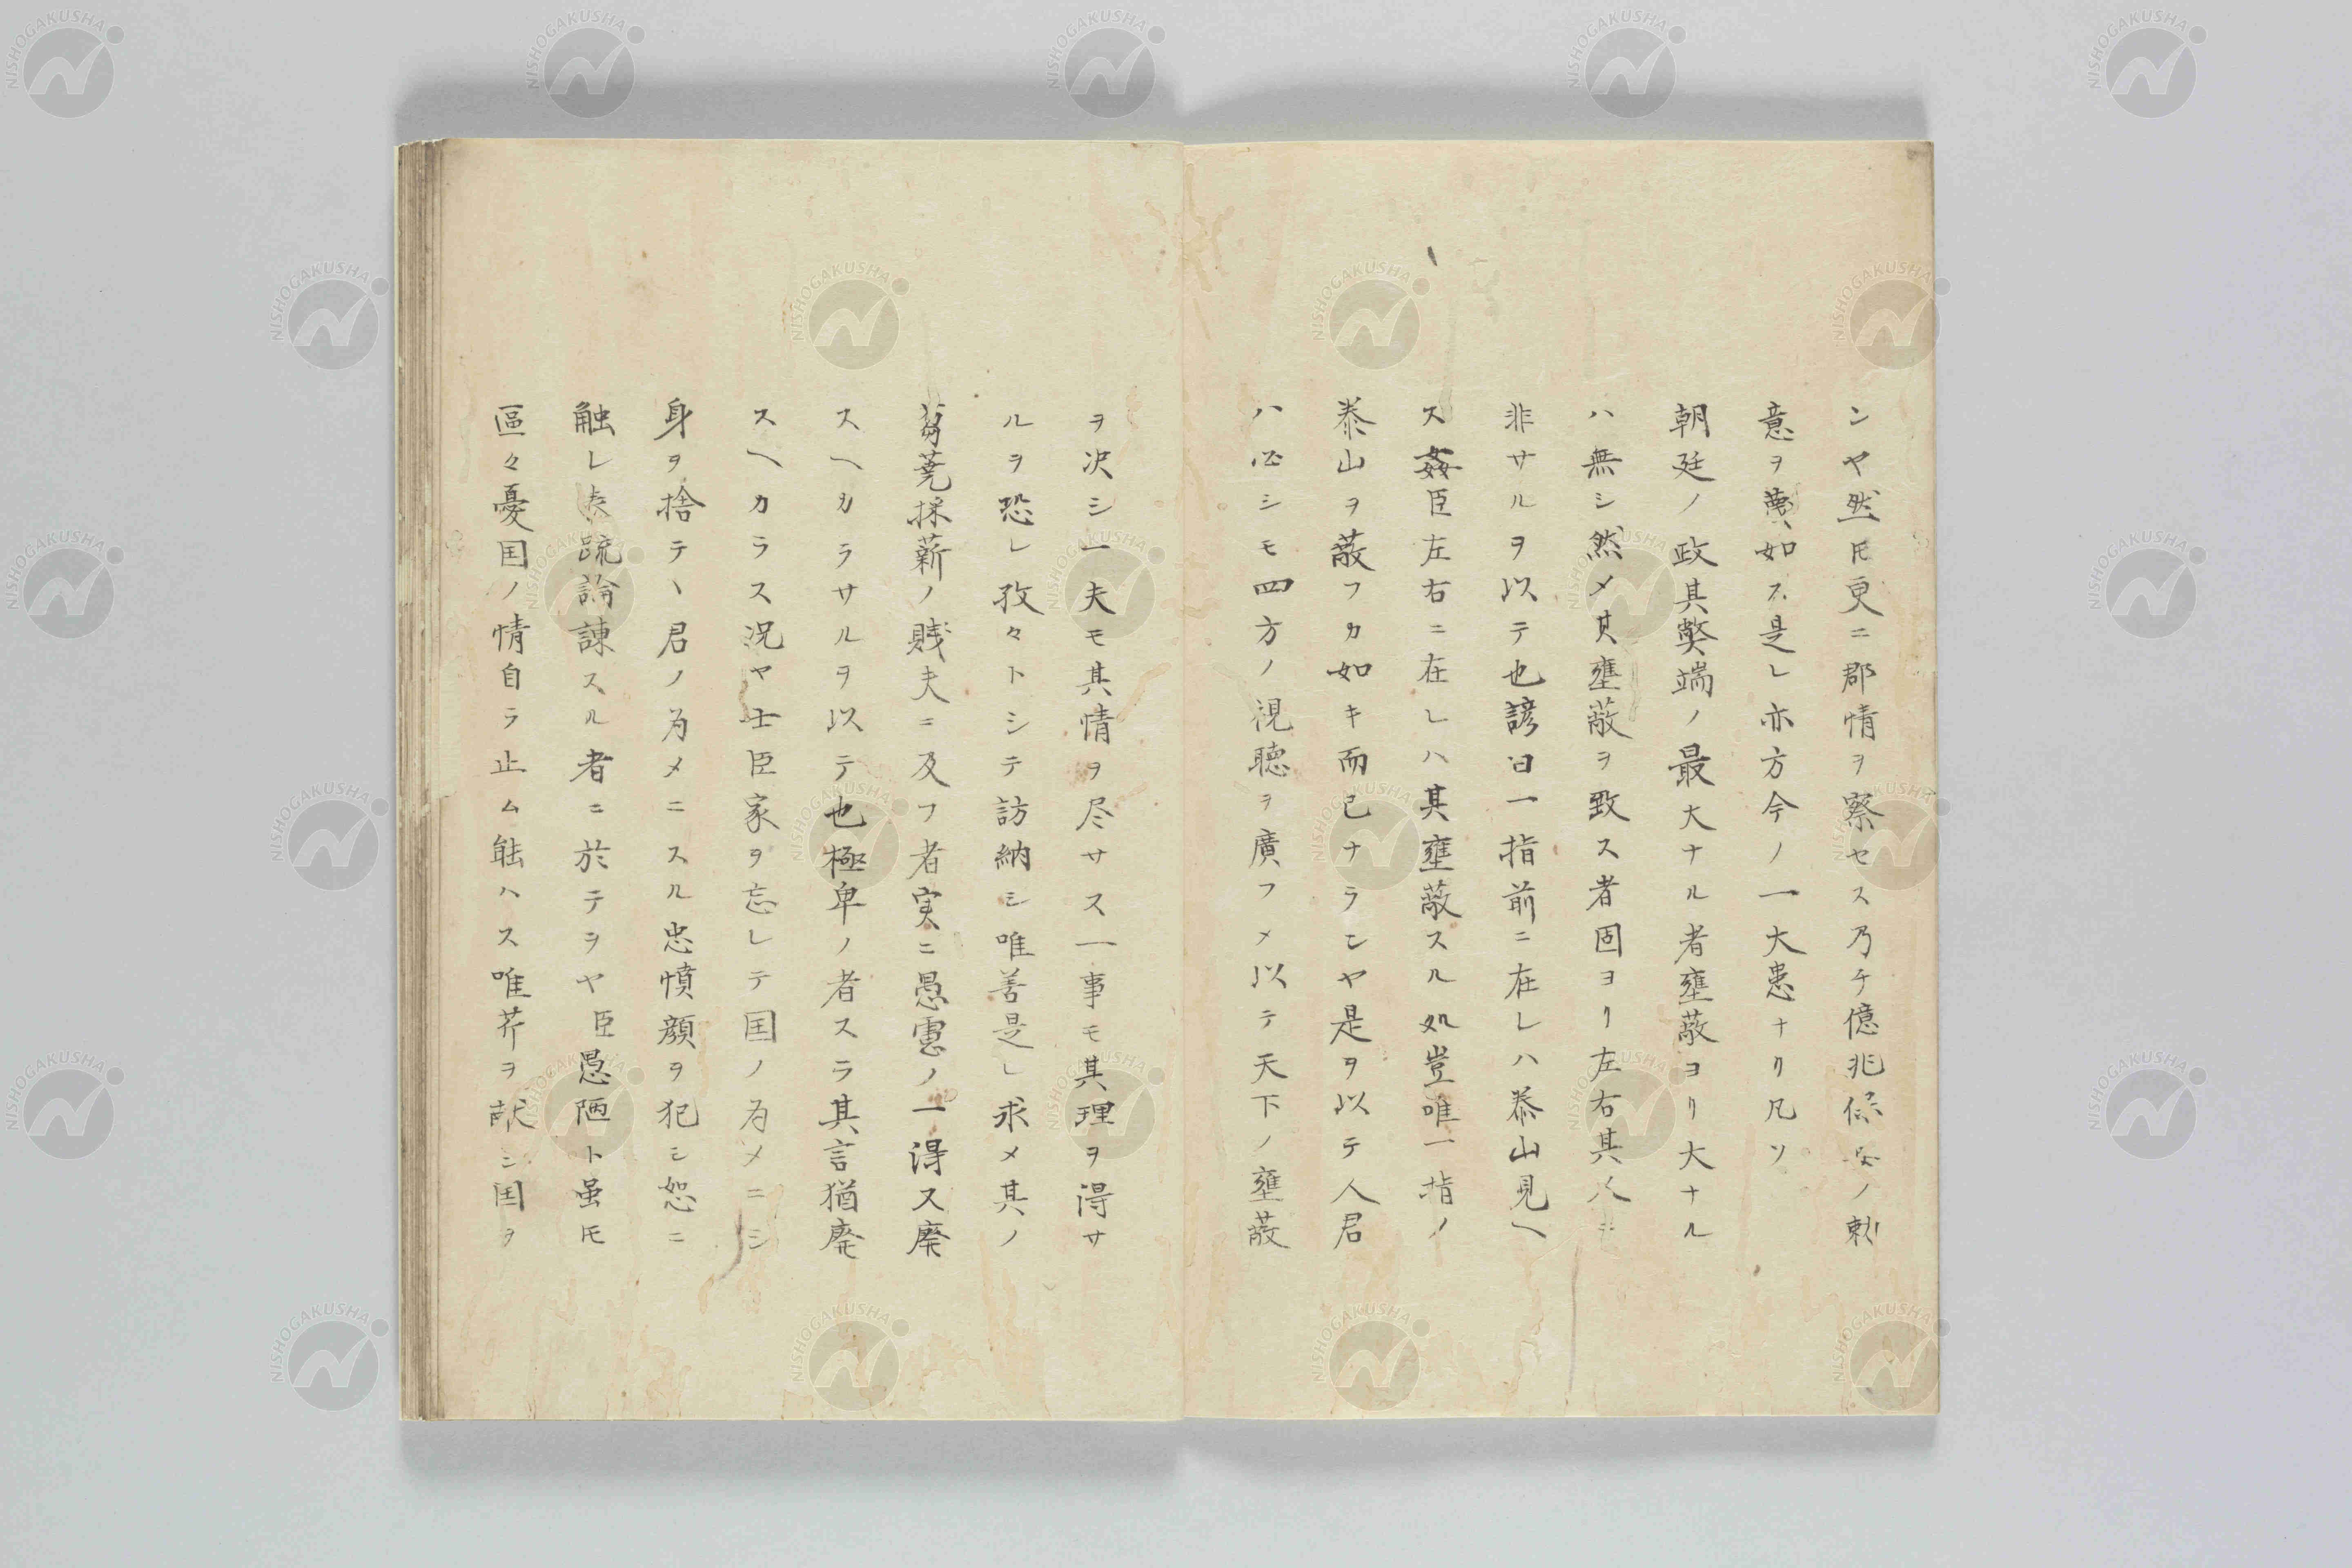 ンヤ然𪜈更ニ郡情ヲ察セス乃チ億兆保安ノ勅
意ヲ蔑如ス是レ亦方今ノ一大患ナリ凡ソ
朝廷ノ政其弊端ノ最大ナル者壅蔽ヨリ大ナル
ハ無シ然メ其壅蔽ヲ致ス者固ヨリ左右其人ニ
非サルヲ以テ也諺曰一指前ニ在レハ泰山見ヘ
ス姦臣左右ニ在レハ其壅蔽スル処豈唯一指ノ
泰山ヲ蔽フカ如キ而已ナランヤ是ヲ以テ人君
ハ必シモ四方ノ視聴ヲ廣フメ以テ天下ノ壅蔽
ヲ决シ一夫モ其情ヲ尽サス一事モ其理ヲ得サ
ルヲ恐レ孜々トシテ訪納シ唯善是レ求メ其ノ
芻蕘採薪ノ賤夫ニ及フ者実ニ愚慮ノ一得ス廃
スヘカラサルヲ以テ也極卑ノ者スラ其言猶廃
スヘカラス况ヤ士臣家ヲ忘レテ国ノ为メニシ
身ヲ捨テヽ君ノ为メニスル忠憤顔ヲ犯シ恕ニ
触レ抗疏論諌スル者ニ於テヲヤ臣愚陋ト虽𪜈
區々憂国ノ情自ラ止ム能ハス唯芥ヲ献シ国ヲ
NISHOGAKUSHA